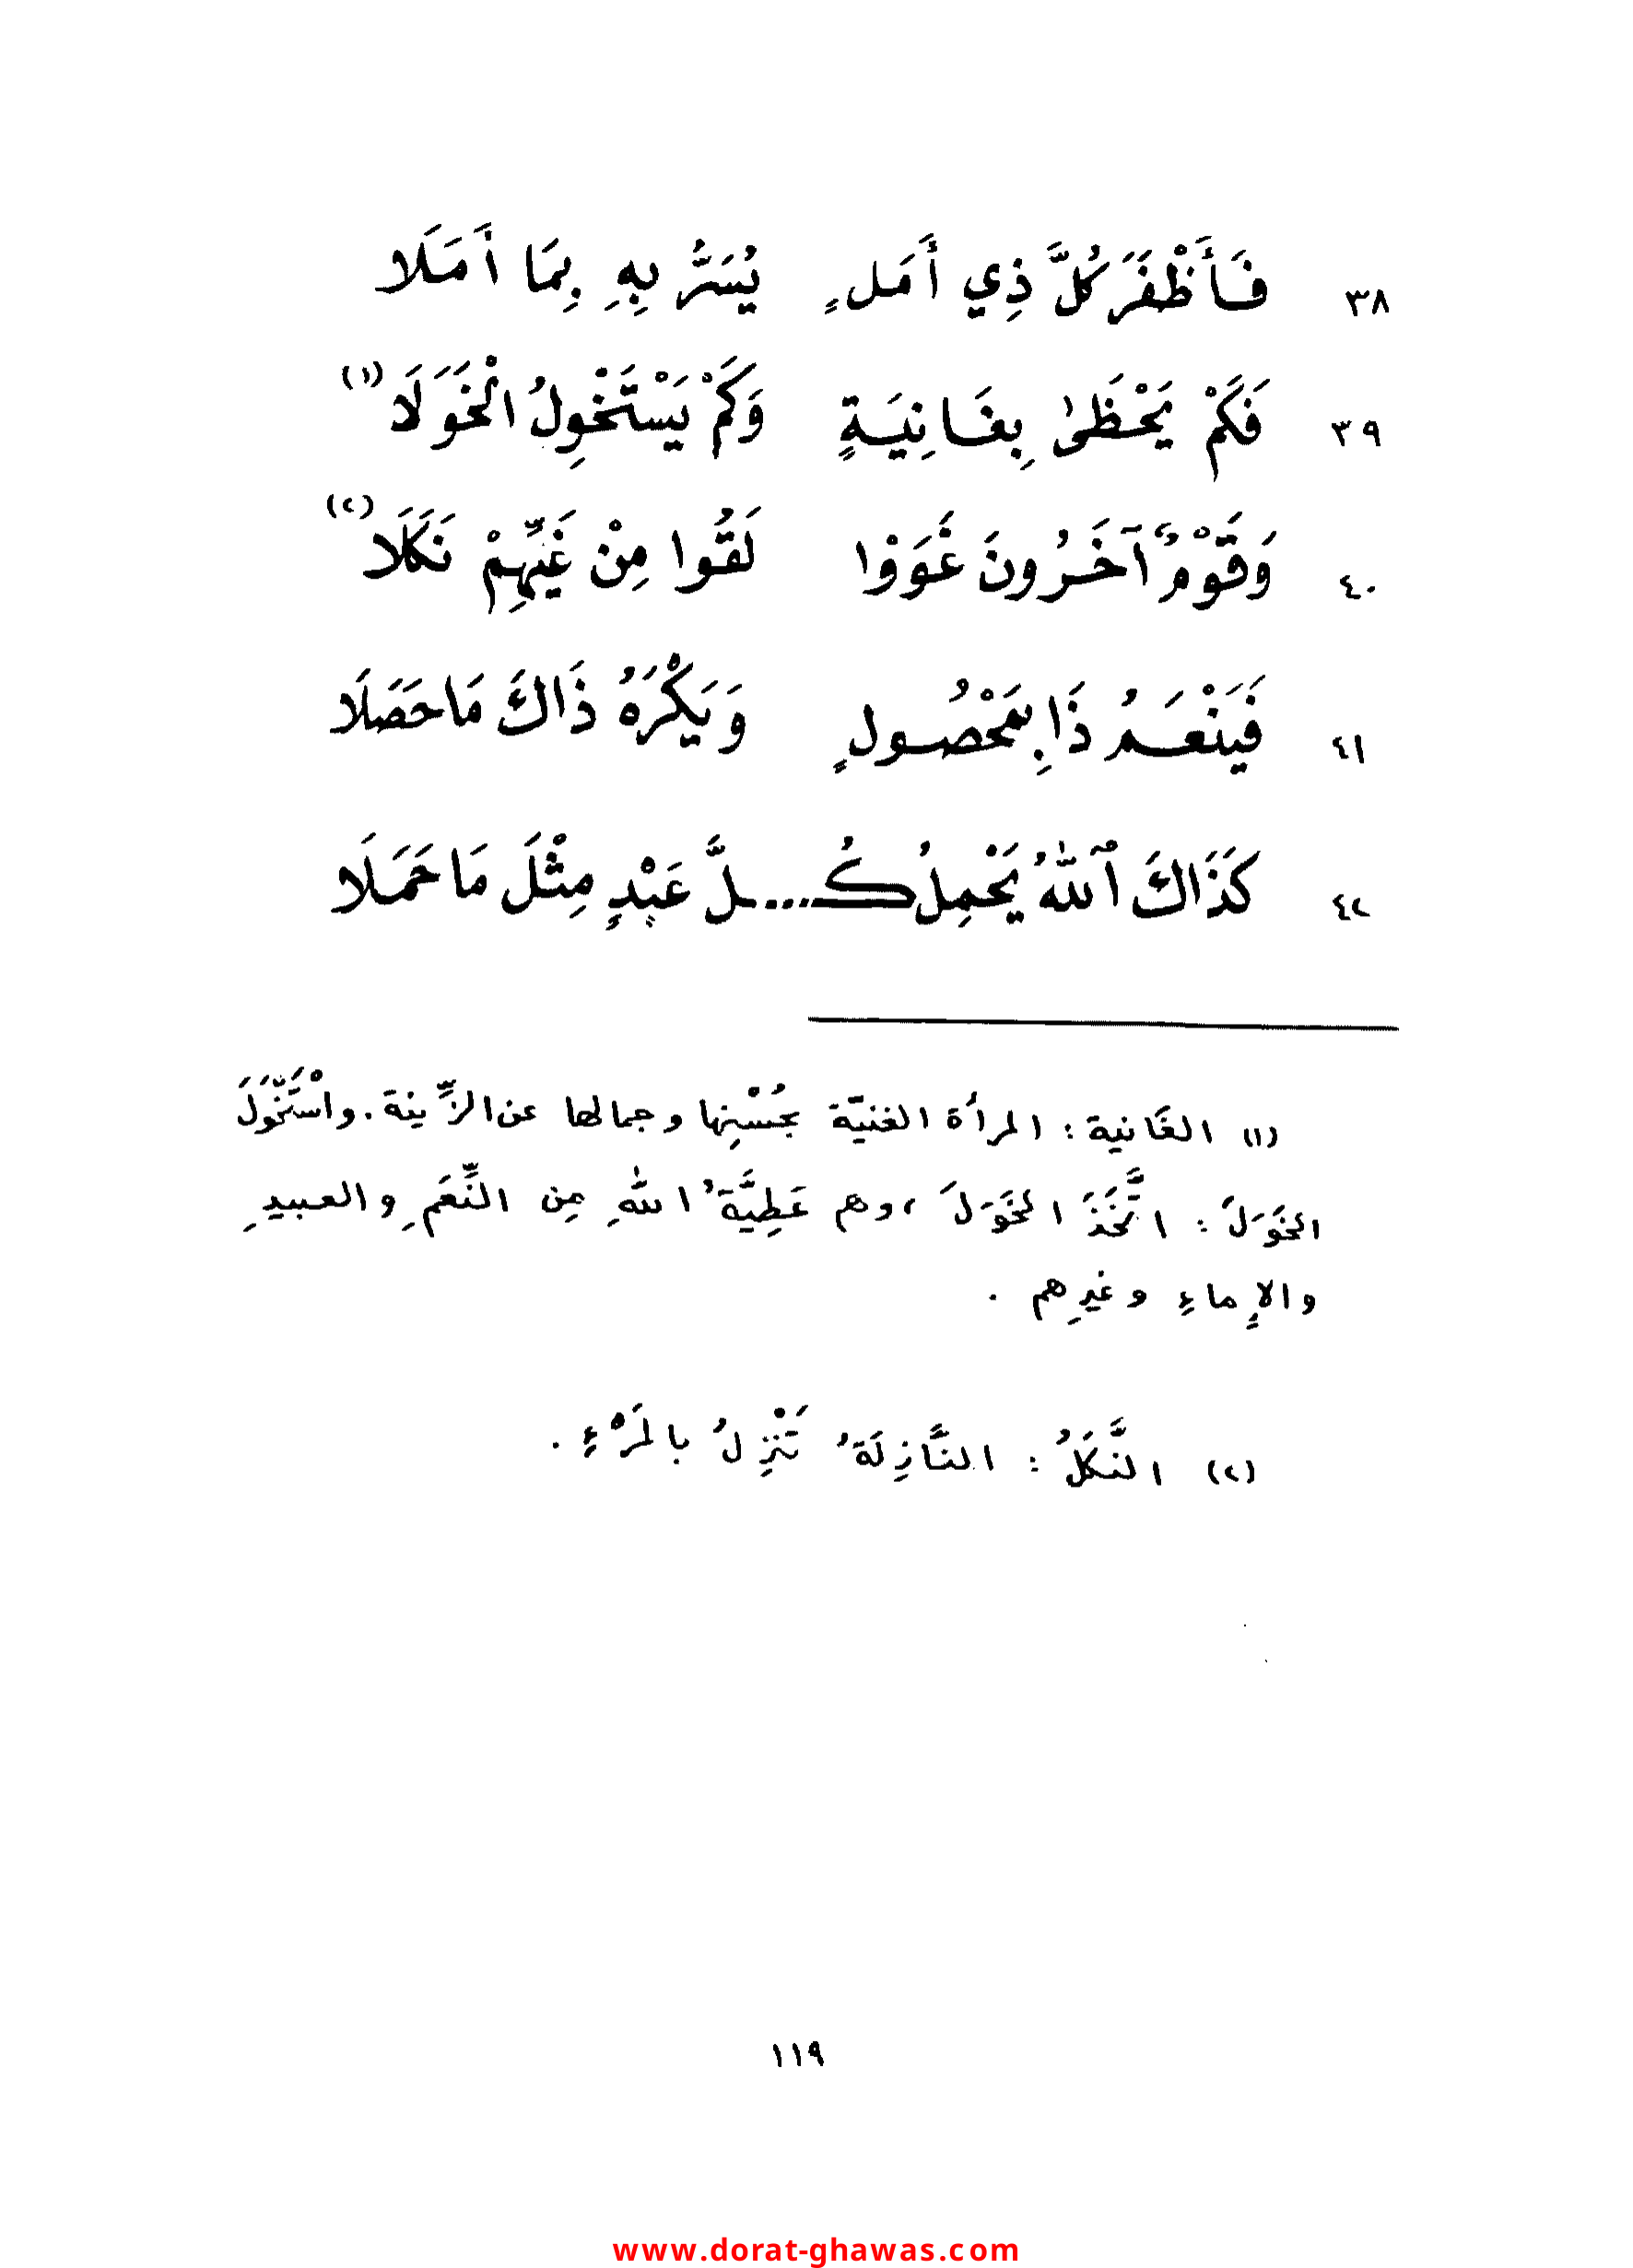 ٣٨ فَأَظْفَرَ كُلَّ ذِي أَمَلٍ يُسَرُّ بِهِ بِمَا أَمَلَا
٣٩ فَكَمْ يَحْظَىٰ بِغَانِيَةٍ وَكَمْ يَسْتَخْوِلُ الْخَوَلَا (١)
٤٠ وَقَوْمٌ آخَرُونَ غَوَوْا لَقُوا مِنْ غَيِّهِمْ نَكَلَا (٢)
٤١ فَيَنْعَمُ ذَا بِمَحْصُولٍ وَيَكْرَهُ ذَاكَ مَا حَصَلَا
٤٢ كَذَاكَ ٱللهُ يَحْمِلُ كُـ....ـلَّ عَبْدٍ مِثْلَ مَا حَمَلَا
(١) الغَانية : المرأة الغنيّة بحُسْنِها وجمالها عن الزِّينة . واسْتَخْوَلَ
الخَوَلَ : اتَّخَذَ الخَوَلَ ، وهم عَطِيَّةُ اللهِ مِن النِّعَمِ والعبيدِ
والإِماءِ وغيرِهم .
(٢) النَّكَلُ : النَّازِلَةُ تَنْزِلُ بالمَرْءِ .
١١٩
www.dorat-ghawas.com